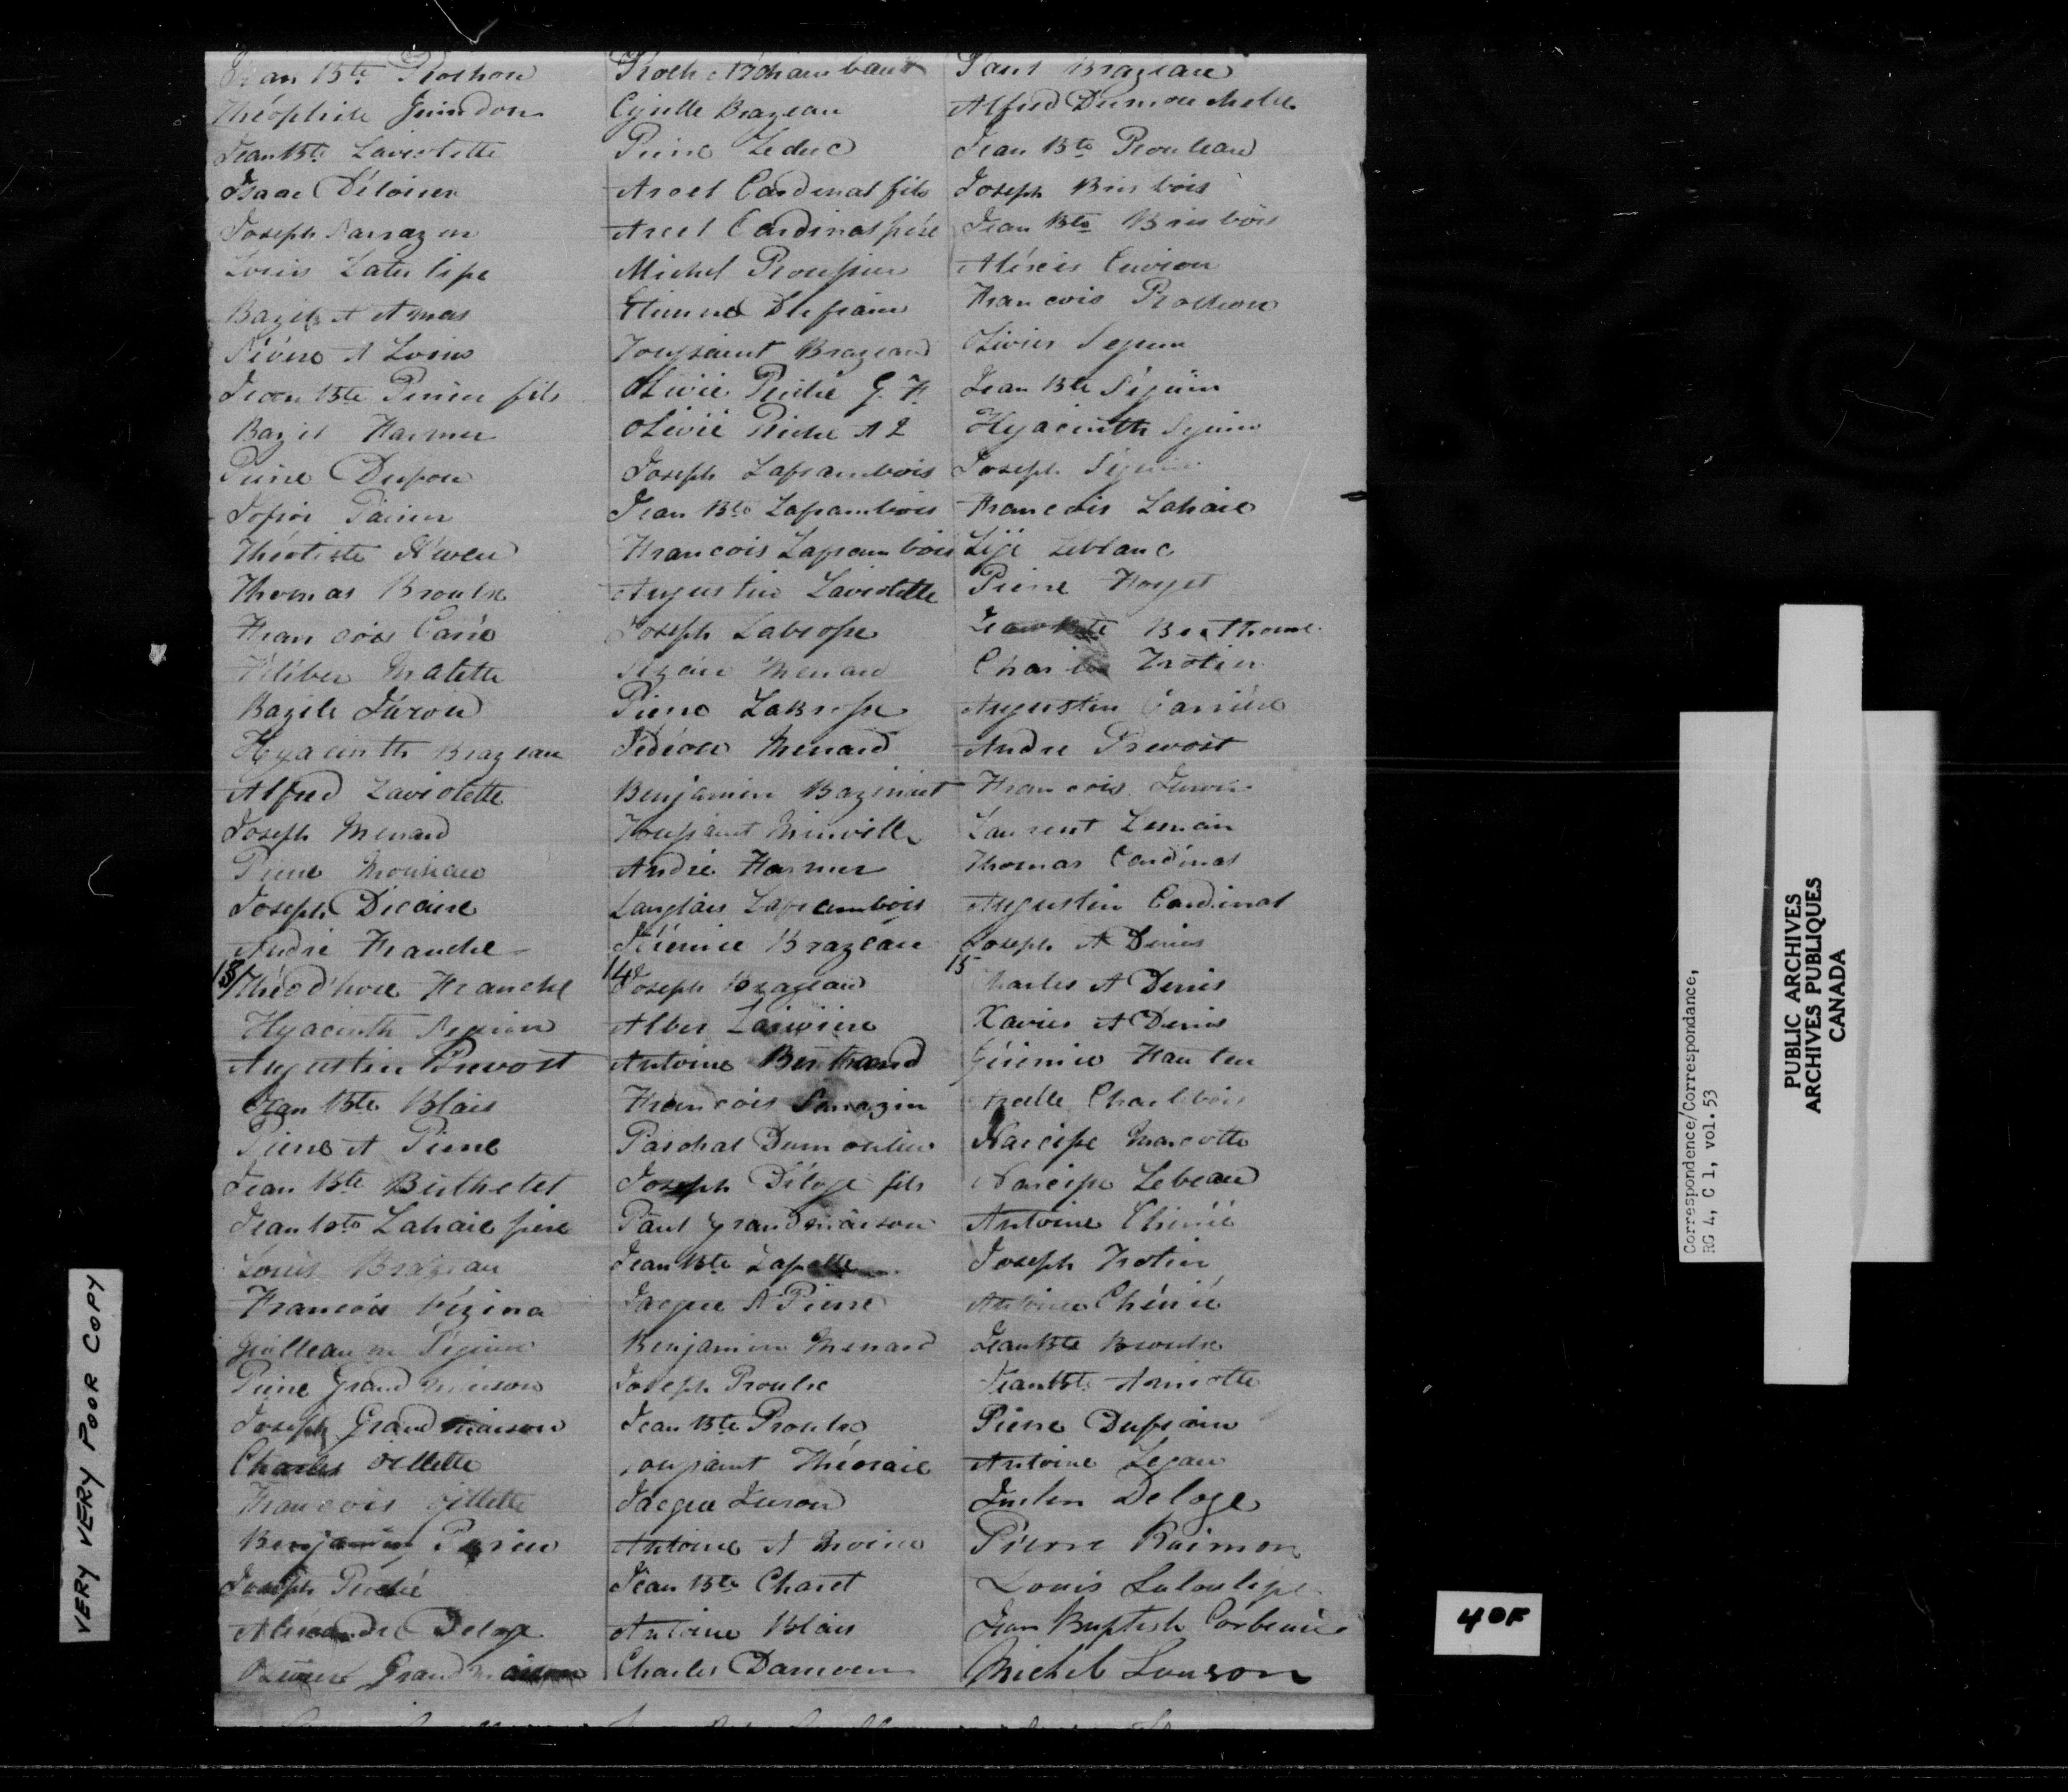 Jean Bte Rochon
Théophile Guindon
Jean Bte Laviolette
Isaac Déloier
Joseph Sarrazin
Louis Latulipe
Bazile St Amas
Sévère St Louis
Jean Bte Perier fils
Bazil Harmer
Pierre Dupou
Théotiste
Thomas Broulx
Francois Carié
Maletta
Bazile Lúrou
Hyacinth Brazeau
Alfred Laviolette
Joseph Menard
Pierre Mousseau
Joseph Dicaire
André Franche
13/ Théod'hore Franche
Hyacinth Seguin
Augustin Prevost
Jean Bte Blais
Pierre St Pierre
Jean Bte Berthelet
Jean Bte Lahaie père
Louis Brazeau
Francois Vézina
Guilleaume Séguin
Pierre Grandmaison
Joseph Grandmaison
Charles Oillette
Francois Oillette
Benjamin Perier
Joseph Piché
Aléxandre Deloge
Olivier Grandmaison
Roch Archambaut
Cyrille Brazeau
Pierre Leduc
Arcel Cardinal fils
Arcel Cardinal père
Michel Proussier
Etienne Dufrain
Toussaint Brazeau
Olivié Piché G. F.
Olivié Piché A L
Joseph Laframbois
Jean Bte Laframbois
Francois Laframbois
Augustin Laviolette
Joseph Labrosse
Menard
Pierre LaBrosse
Jédéon Menard
Benjamin Bazinait
Toussaint Minville
André Harmer
Langlais Laframbois
Jérémie Brazeau
14 Joseph Brazeau
Alber Larivière
Antoine Berthrand
Francois Sarrazin
Paschal Dumoulin
Joseph Déloge fils
Paul Grandmaison
Jean Bte
Jacque St Pierre
Benjamin Menard
Joseph Proulx
Jean Bte Proulx
Toussaint Théoraie
Jacque Lurou
Antoine St Moine
Jean Bte Charet
Antoine Blais
Charles Damoen
Paul Brazeau
Alfred Dumouchelle
Jean Bte Rouleau
Joseph Brisbois
Jean Bte Brisbois
Aléxis Cuvion
Francois Rochon
Olivier Seguin
Jean Bte Séguin
Hyacinth Séguin
Joseph Séguin
Francois Lahaie
Léje Leblanc
Pierre Forget
Jean Bte Berthome
Charles Trotier
Augustin Carrière
Andre Prevost
Francois
Laurent Lemain
Thomas Cardinal
Augustin Cardinal
Joseph St Denis
15 Charles St Denis
Xavier St Denis
Jérémie Fauteu
Charlebois
Narcisse Marcotte
Narcisse Lebeau
Antoine Chénié
Joseph Trotier
Antoine Chénié
Jean Bte Broulx
Jean Bte Amiotte
Pierre Dufrain
Antoine Legau
Deloge
Pierre Raimon
Louis Latoulipe
Jean Baptiste Corbeuie
Michel Lauzon
VERY VERY POOR COPY
40F
Correspondence/Correspondance,
RG 4, C 1, vol. 53
PUBLIC ARCHIVES
ARCHIVES PUBLIQUES
CANADA